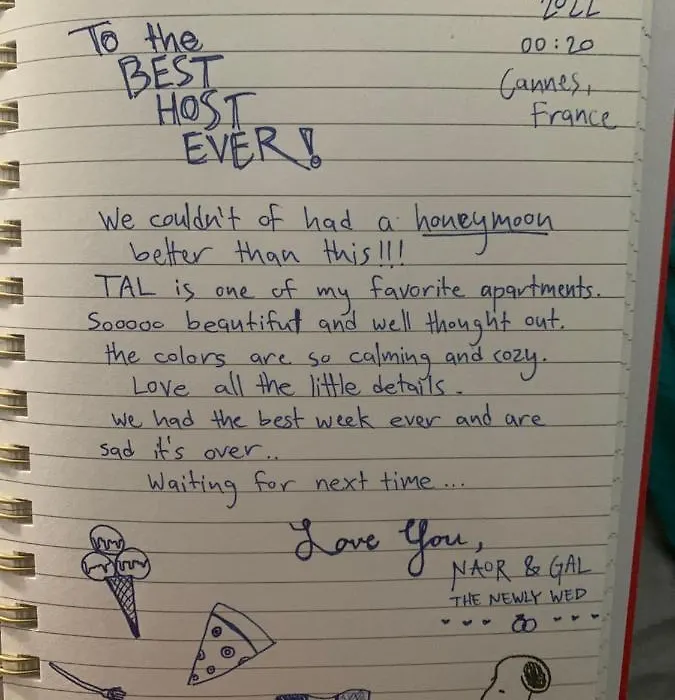 2022
To the
00:20
BEST
Cannes,
HOST
France
EVER!
We couldn't of had a honeymoon
better than this!!!
TAL is one of my favorite apartments.
Sooooo beautiful and well thought out.
the colors are so calming and cozy.
Love all the little details.
we had the best week ever and are
sad it's over..
Waiting for next time...
Love You,
NAOR & GAL
THE NEWLY WED